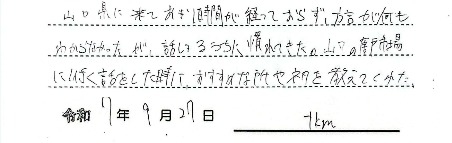 山口県に来てあまり時間が経っておらず、方言が何も
わからなかったが、話しているうちに慣れてきた。山口の唐戸市場
に行く話をした時に、おすすめな所や物を教えてくれた。
令和 7年 9月 27日